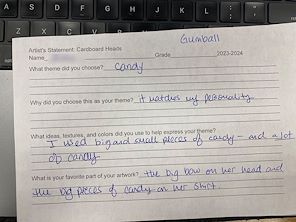 A S D F G H J K L : ; " '
Z X C
Gumball
Artist's Statement: Cardboard Heads
Name Grade 2023-2024
What theme did you choose? Candy
Why did you choose this as your theme? it matches my personality
What ideas, textures, and colors did you use to help express your theme?
I used big and small pieces of candy - and a lot
of candy
What is your favorite part of your artwork? the big bow on her head and
the big pieces of candy on her shirt.